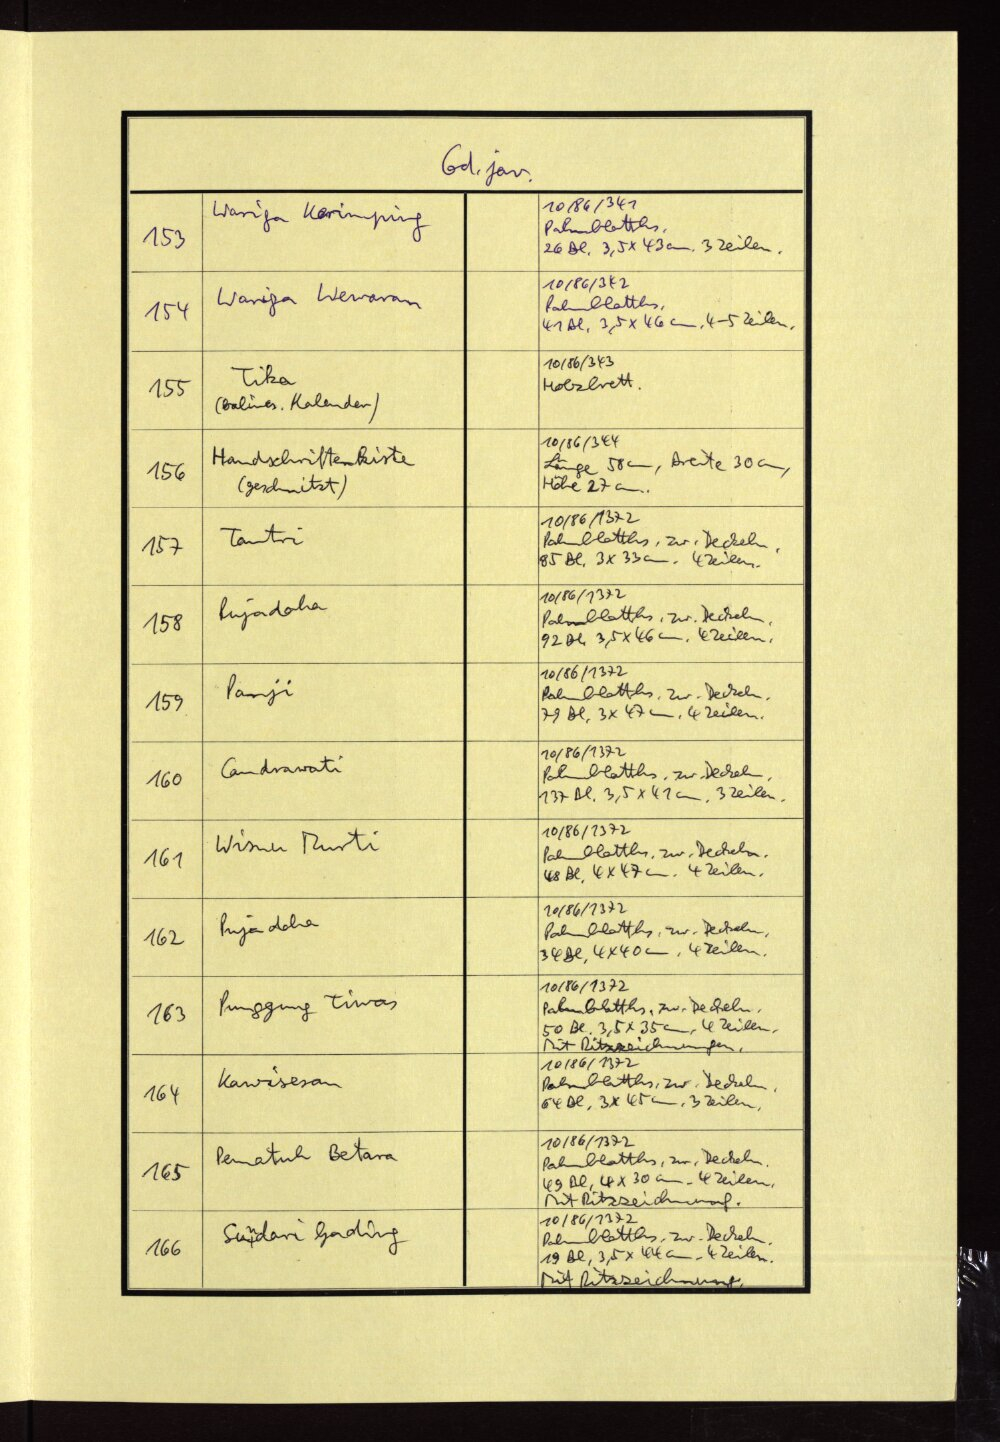 Cd. jav.
153
Wariga Kerimping
10/86/341
Palmblatths.
26 Bl. 3,5 x 43 cm. 3 Zeilen.
154
Wariga Wewaran
10/86/342
Palmblatths.
41 Bl. 3,5 x 46 cm. 4-5 Zeilen.
155
Tika
(Balines. Kalender)
10/86/343
Holzbrett.
156
Handschriftenkiste
(geschnitzt)
10/86/344
Länge 58 cm, Breite 30 cm,
Höhe 27 cm.
157
Tantri
10/86/1372
Palmblatths. zw. Deckeln.
85 Bl. 3 x 33 cm. 4 Zeilen.
158
Pujadaha
10/86/1372
Palmblatths. zw. Deckeln.
92 Bl. 3,5 x 46 cm. 4 Zeilen.
159
Panji
10/86/1372
Palmblatths. zw. Deckeln.
79 Bl. 3 x 47 cm. 4 Zeilen.
160
Candrawati
10/86/1372
Palmblatths. zw. Deckeln.
137 Bl. 3,5 x 41 cm. 3 Zeilen.
161
Wisnu Murti
10/86/1372
Palmblatths. zw. Deckeln.
48 Bl. 4 x 47 cm. 4 Zeilen.
162
Pujadaha
10/86/1372
Palmblatths. zw. Deckeln.
34 Bl. 4 x 40 cm. 4 Zeilen.
163
Punggung Tiwas
10/86/1372
Palmblatths. zw. Deckeln.
50 Bl. 3,5 x 35 cm. 4 Zeilen.
Mit Ritzzeichnungen.
164
Kawisesan
10/86/1372
Palmblatths. zw. Deckeln.
64 Bl. 3 x 45 cm. 3 Zeilen.
165
Pematuh Betara
10/86/1372
Palmblatths. zw. Deckeln.
49 Bl. 4 x 30 cm. 4 Zeilen.
Mit Ritzzeichnung.
166
Sundari Gading
10/86/1372
Palmblatths. zw. Deckeln.
19 Bl. 3,5 x 44 cm. 4 Zeilen.
Mit Ritzzeichnung.